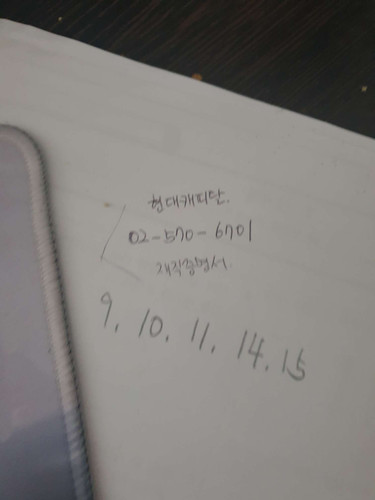 현대캐피탈.
02-570-6701
재직증명서.
9. 10. 11. 14. 15